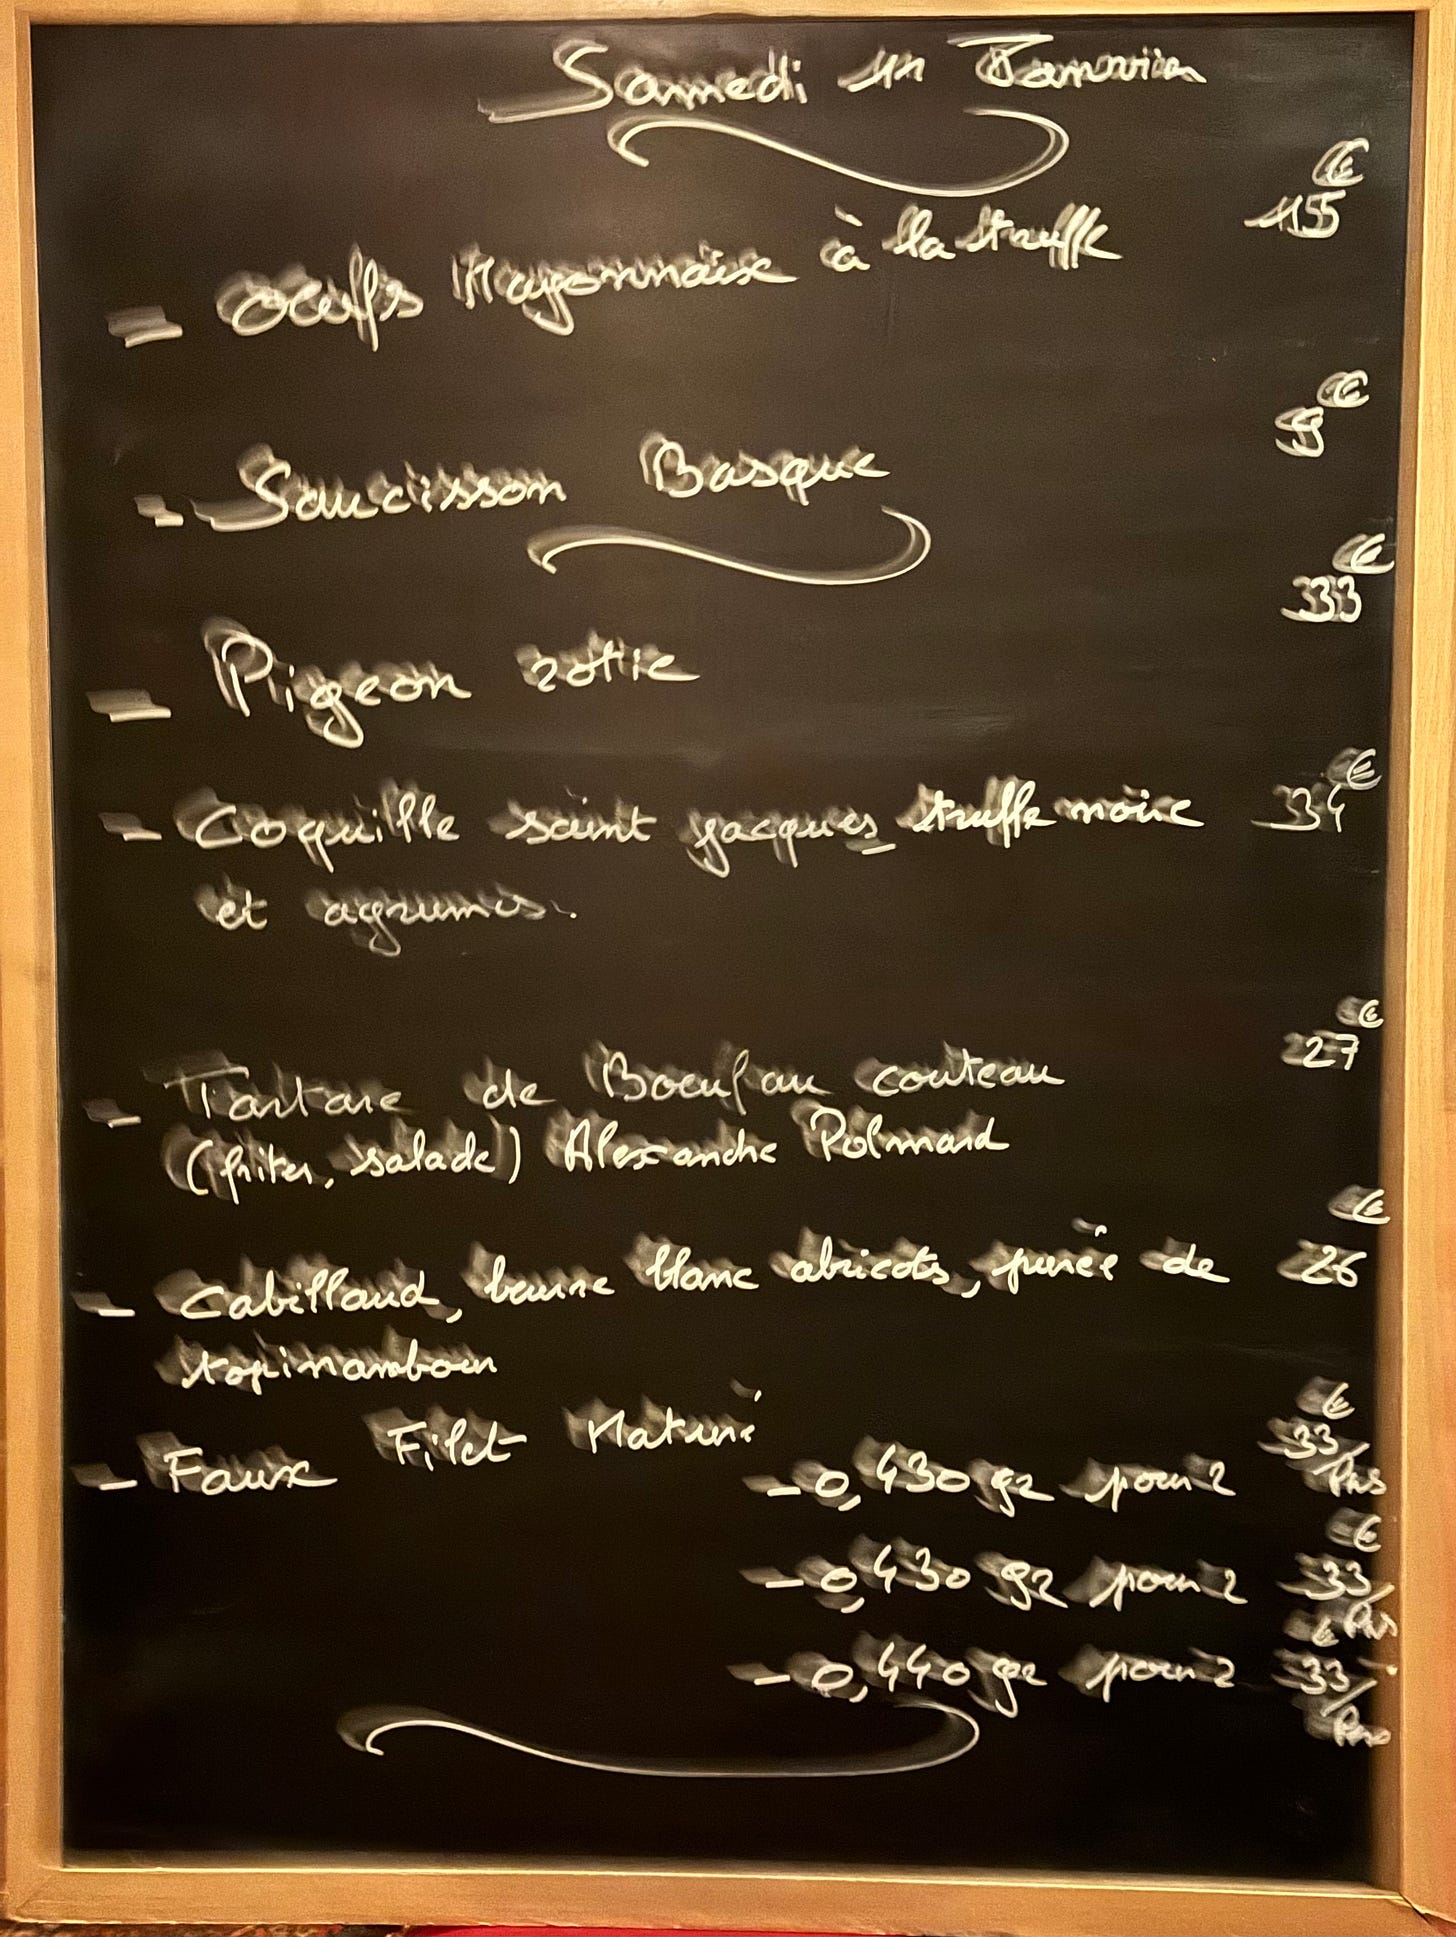 Samedi 11 Janvier
- Oeufs Mayonnaise à la truffe 15€
- Saucisson Basque 9€
- Pigeon rotie 33€
- Coquille saint jacques truffe noire 34€
et agrumes.
- Tartare de Boeuf au couteau 27€
(frites, salade) Alexandre Polmard
- Cabillaud, beurre blanc abricots, purée de 26€
topinambour
- Faux Filet Maturé
- 0,430 gr pour 2 33€/Pers
- 0,430 gr pour 2 33€/Pers
- 0,440 gr pour 2 33€/Pers